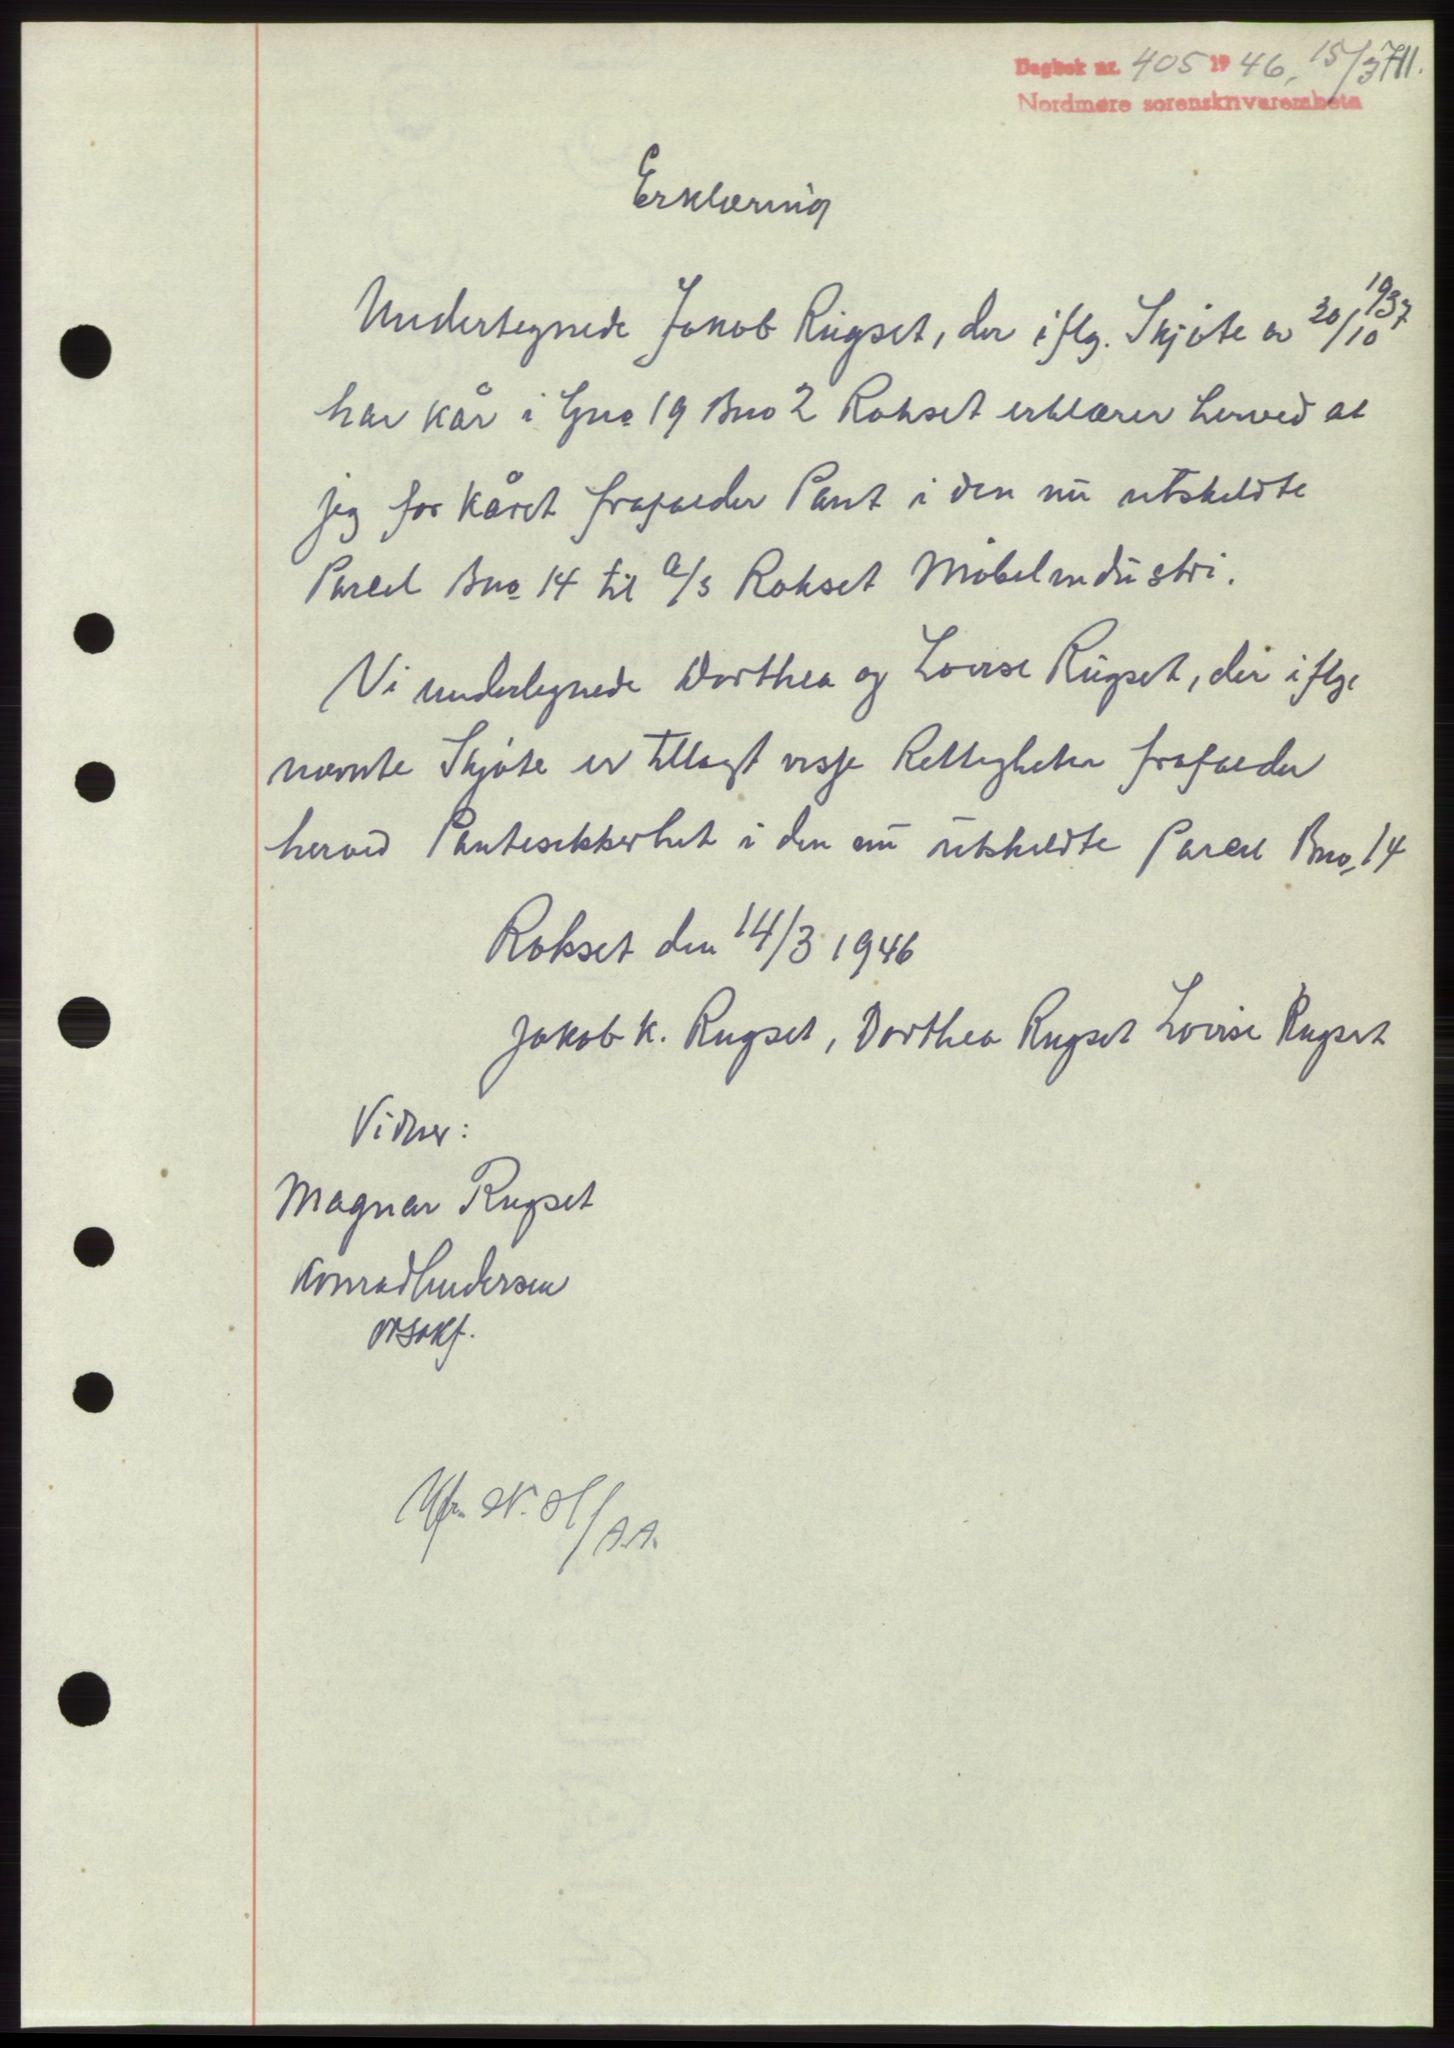 Dagbok nr. 405 19 46, 15/3 711.
Nordmøre sorenskrivarembete
Erklæring
Undertegnede Jakob Rugset, der iflg. Skjöte av 20/10 1937
har kår i Gno 19 Bno 2 Rokset erklærer herved at
jeg for kåret frafalder Pant i den nu utskildte
Parcel Bno 14 til a/s Rokset Möbelindustri.
Vi undertegnede Dorthea og Lovise Rugset, der iflg.
nævnte Skjöte er tillagt visse Rettigheter frafalder
herved Pantesikkerhet i den nu utskildte Parcel Bno. 14
Rokset den 14/3 1946
Jakob K. Rugset, Dorthea Rugset Lovise Rugset
Vidner:
Magnar Rugset
Konrad Andersen
o.r.sakf.